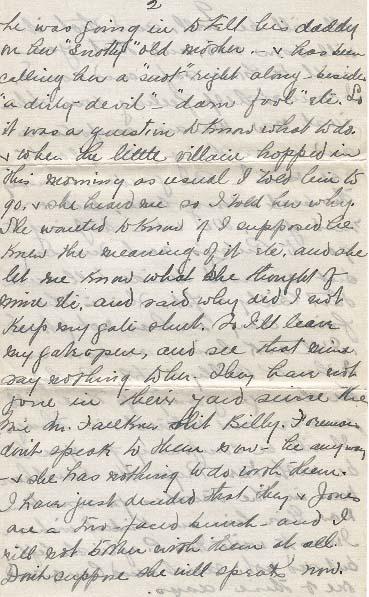 2
he was going in to tell his daddy
on her "Snotty" old mother. - & has been
calling her a "snot" right along - besides
"a dirty devil" "darn fool" etc. So
it was a question to know what to do.
& when the little villain hopped in
this morning as usual I told him to
go. & she heard me so I told her why.
She wanted to know if I supposed he
knew the meaning of it etc. and she
let me know what she thought of
mine etc. and said why did I not
keep my gate shut. So I'll leave
my gate open, and see that mine
say nothing to her. They have not
gone in their yard since the
time Mr. Faulkner hit Billy. Foreman
don't speak to them now - he anyway
- & she has nothing to do with them.
I have just decided that they & Jones
are a two-faced bunch - and I
will not bother with them at all.
Don't suppose she will speak now.